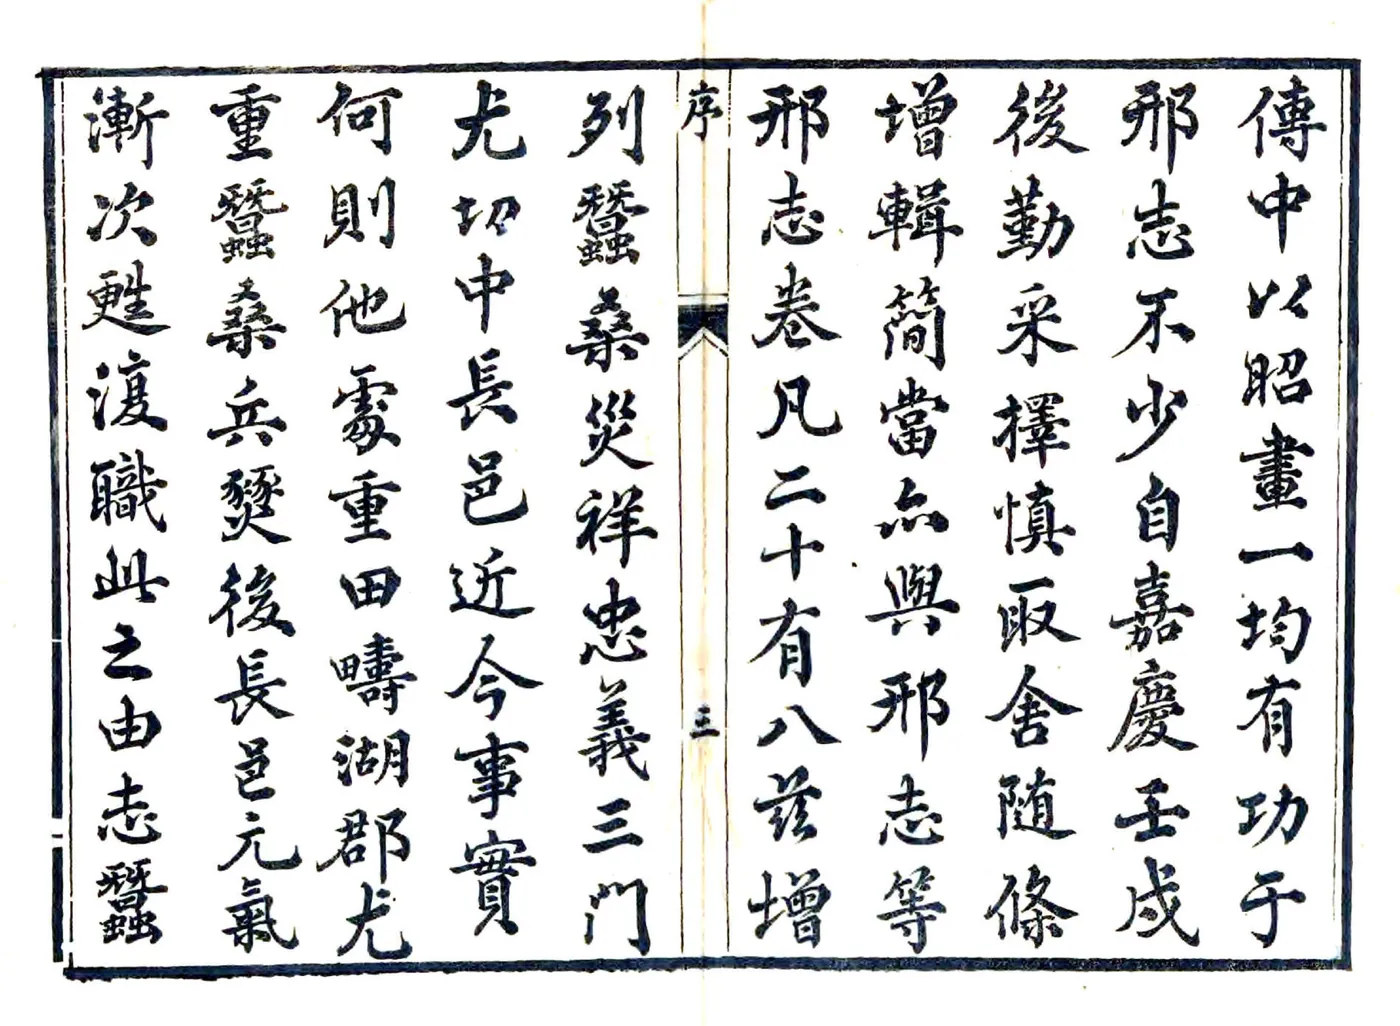 傳中以昭畫一均有功于
邢志不少自嘉慶壬戌
後勤采擇慎取舍随條
增輯簡當亦與邢志等
邢志卷凡二十有八兹增
序
三
列蠶桑災祥忠義三門
尤切中長邑近今事實
何則他處重田疇湖郡尤
重蠶桑兵燹後長邑元氣
漸次甦復職此之由志蠶